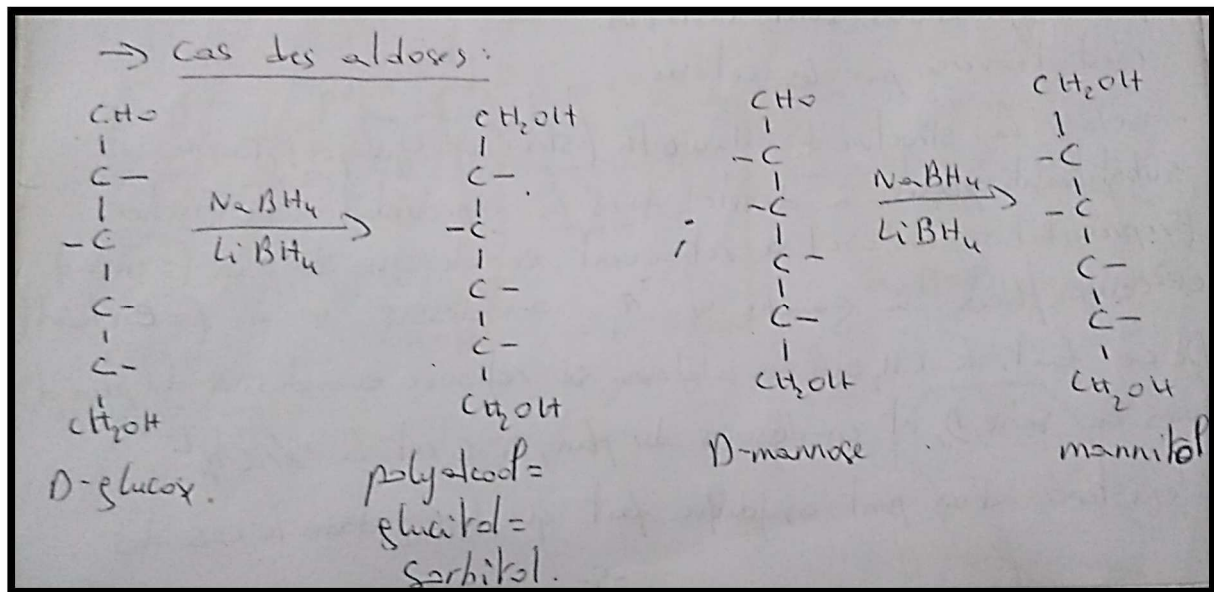 → Cas des aldoses :
CHO
|
C –
|
– C
|
C –
|
C –
|
CH₂OH
D-glucose.
NaBH₄
LiBH₄
CH₂OH
|
C –
|
– C
|
C –
|
C –
|
CH₂OH
polyalcool =
glucitol =
sorbitol.
;
CHO
|
– C
|
– C
|
C –
|
C –
|
CH₂OH
D-mannose
NaBH₄
LiBH₄
CH₂OH
|
– C
|
– C
|
C –
|
C –
|
CH₂OH
mannitol